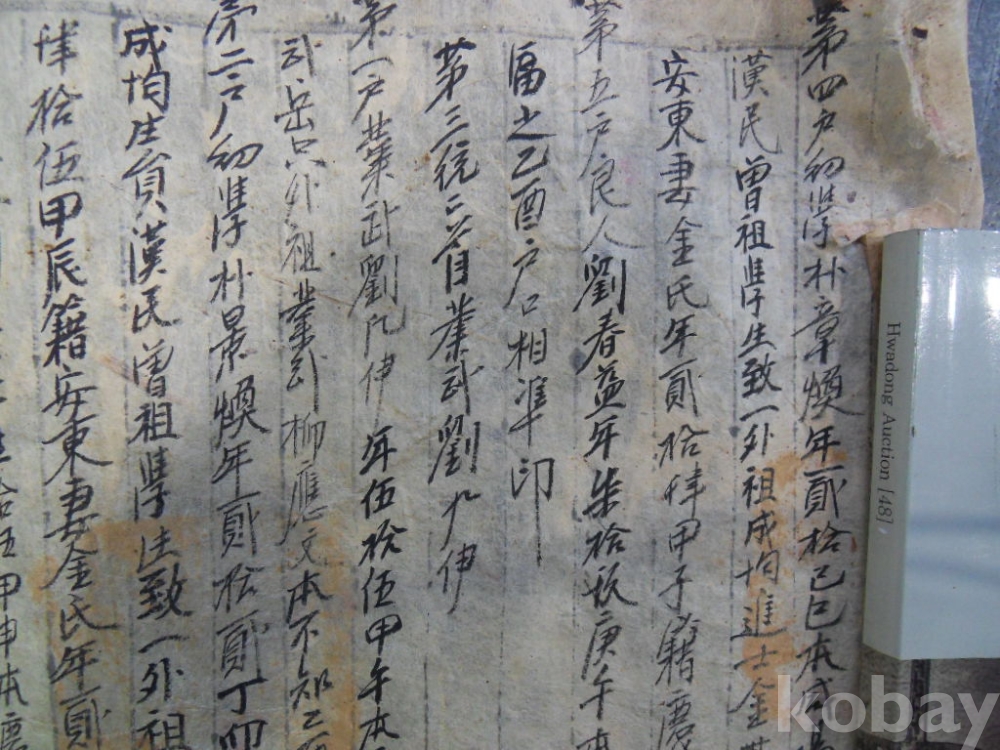 第四戶幼學朴章煥年貳拾己巳本咸
漢民曾祖學生致一外祖成均進士金
安東妻金氏年貳拾肆甲子籍慶
第五戶良人劉春益年柒拾 庚午本
富之乙酉戶口相準印
第三統統首業武劉九伊
第一戶業武劉九伊年伍拾伍甲午本
武岳只外祖業武柳應文本不知乙酉
第二戶幼學朴景煥年貳拾貳丁卯
成均生員漢民曾祖學生致一外祖
肆拾伍甲辰籍安東妻金氏年貳
拾五甲申本慶
Hwadong Auction [48]
kobay